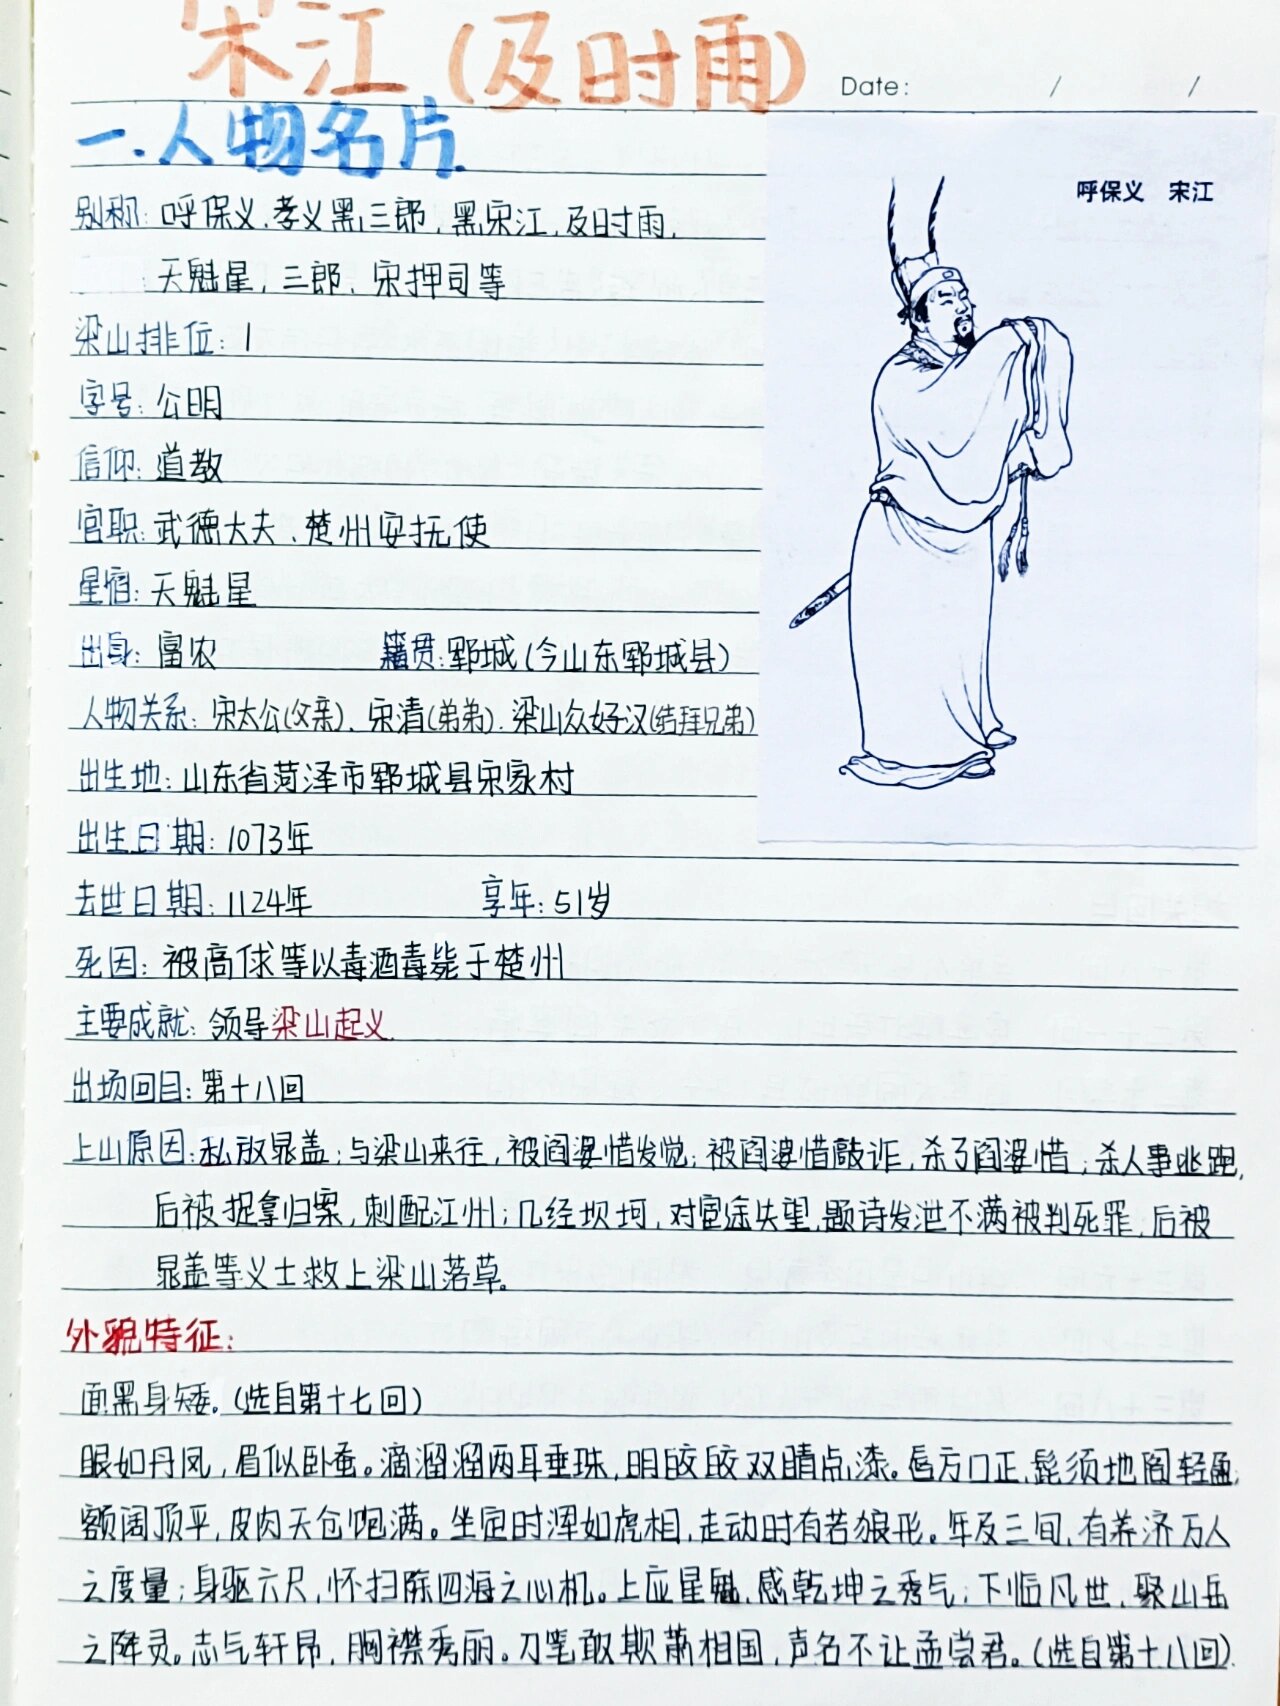 宋江(及时雨)
Date: / /
一.人物名片.
呼保义 宋江
别称:呼保义、孝义黑三郎,黑宋江,及时雨,
天魁星,三郎、宋押司等
梁山排位:1
字号:公明
信仰:道教
官职:武德大夫、楚州安抚使
星宿:天魁星
出身:富农 籍贯:郓城(今山东郓城县)
人物关系:宋太公(父亲)、宋清(弟弟).梁山众好汉(结拜兄弟)
出生地:山东省菏泽市郓城县宋家村
出生日期:1073年
去世日期:1124年 享年:51岁
死因:被高俅等以毒酒毒毙于楚州
主要成就:领导梁山起义.
出场回目:第十八回
上山原因:私放晁盖;与梁山来往,被阎婆惜发觉;被阎婆惜敲诈,杀了阎婆惜;杀人事逃跑,
后被捉拿归案,刺配江州;几经坝坷,对官途失望,题诗发泄不满被判死罪,后被
晁盖等义士救上梁山落草。
外貌特征:
面黑身矮。(选自第十七回)
眼如丹凤,眉似卧蚕。滴溜溜两耳垂珠,明皎皎双睛点漆。唇方口正,髭须地阁轻盈;
额阔顶平,皮肉天仓饱满。坐定时浑如虎相,走动时有若狼形。年及三旬,有养济万人
之度量;身躯六尺,怀扫除四海之心机。上应星魁,感乾坤之秀气;下临凡世,聚山岳
之降灵。志气轩昂,胸襟秀丽。刀笔敢欺萧相国,声名不让孟尝君。(选自第十八回)